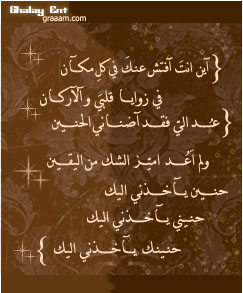 Ghalay Ent
graaam.com
{ آين انتَ آفتش عنكَ في كل مكـآن
في زوايـا قلبيَ وآلآركـان
عنـد التي فقـد آضنـاني الحنـين {
ولم آعُـد اميّـز الشك من اليقـين
حنـين يـآخـذني اليك
حنيني يـآخـذني اليك
حنينك يـآخـذني اليك }